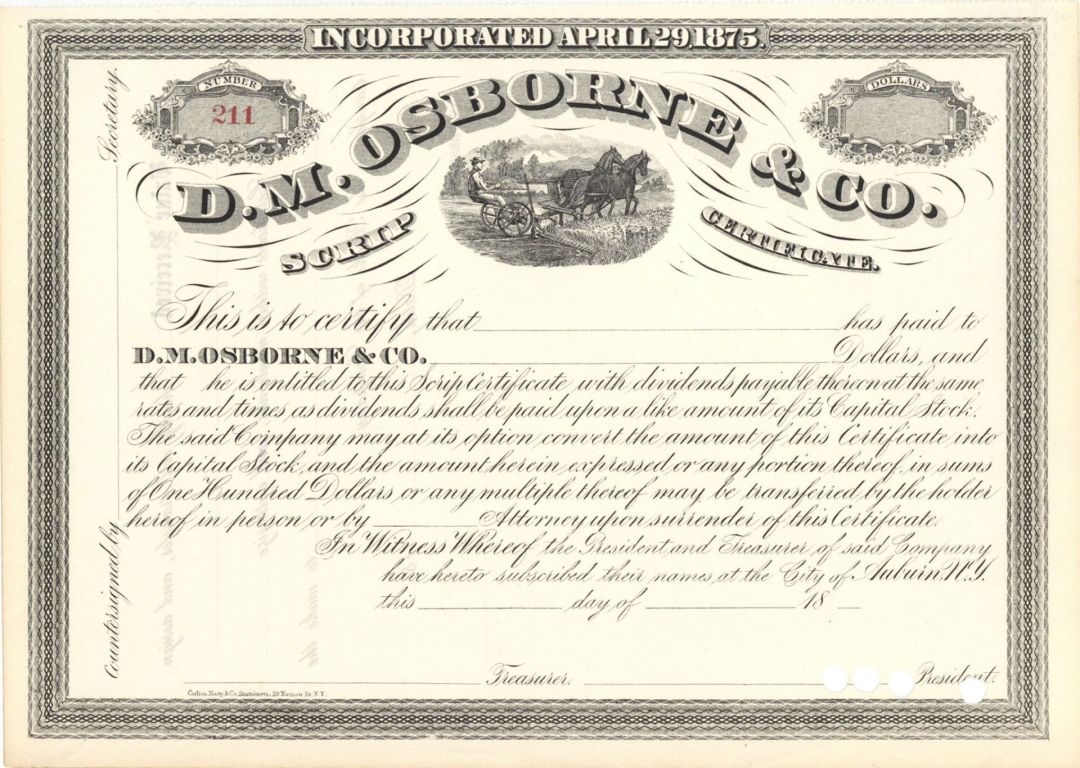 INCORPORATED APRIL 29, 1875.
NUMBER
211
DOLLARS
D.M. OSBORNE & CO.
SCRIP CERTIFICATE.
This is to certify that has paid to
D.M. OSBORNE & CO. Dollars, and
that he is entitled to this Scrip Certificate with dividends payable thereon at the same
rates and times as dividends shall be paid upon a like amount of its Capital Stock.
The said Company may at its option convert the amount of this Certificate into
its Capital Stock, and the amount herein expressed or any portion thereof, in sums
of One Hundred Dollars or any multiple thereof may be transferred by the holder
hereof in person or by Attorney upon surrender of this Certificate.
In Witness Whereof the President and Treasurer of said Company
have hereto subscribed their names, at the City of Auburn, N.Y.
this day of 18
Treasurer. President.
Countersigned by Secretary.
Stationers, N.Y.